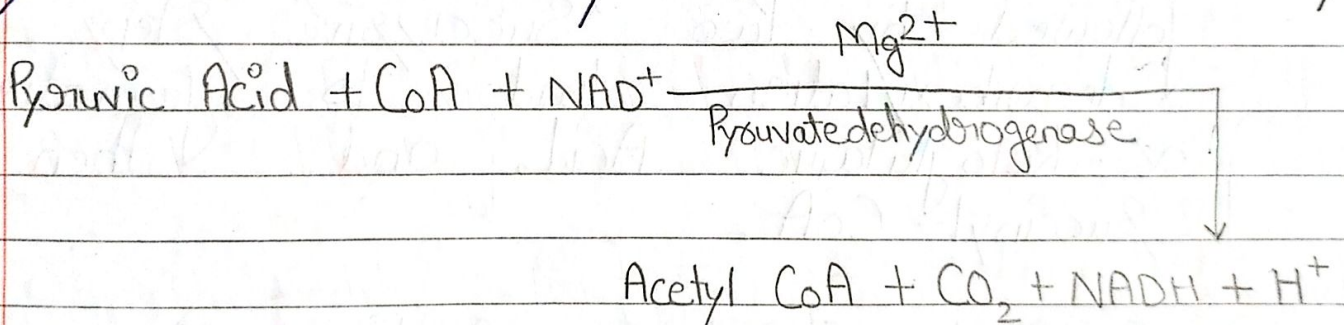 Mg2+
Pyruvic Acid + CoA + NAD+
Pyruvatedehydrogenase
Acetyl CoA + CO2 + NADH + H+